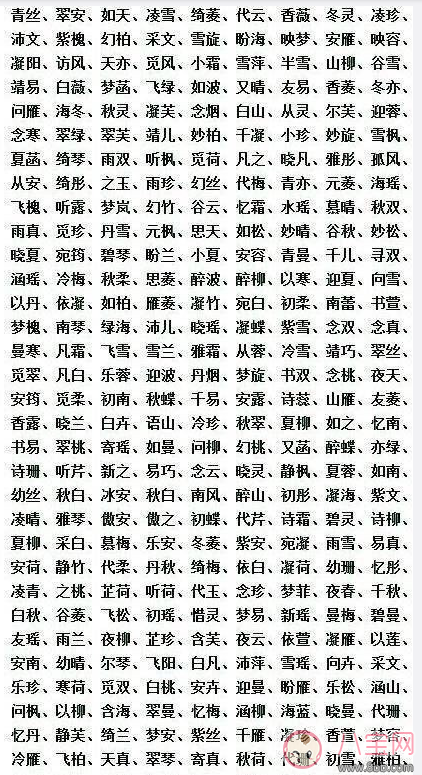 青丝、翠安、如天、凌雪、绮菱、代云、香薇、冬灵、凌珍、
沛文、紫槐、幻柏、采文、雪旋、盼海、映梦、安雁、映容、
凝阳、访风、天亦、觅风、小霜、雪萍、半雪、山柳、谷雪、
靖易、白薇、梦菡、飞绿、如波、又晴、友易、香菱、冬亦、
问雁、海冬、秋灵、凝芙、念烟、白山、从灵、尔芙、迎蓉、
念寒、翠绿、翠芙、靖儿、妙柏、千凝、小珍、妙旋、雪枫、
夏菡、绮琴、雨双、听枫、觅荷、凡之、晓凡、雅彤、孤风、
从安、绮彤、之玉、雨珍、幻丝、代梅、青亦、元菱、海瑶、
飞槐、听露、梦岚、幻竹、谷云、忆霜、水瑶、慕晴、秋双、
雨真、觅珍、丹雪、元枫、思天、如松、妙晴、谷秋、妙松、
晓夏、宛筠、碧琴、盼兰、小夏、安容、青曼、千儿、寻双、
涵瑶、冷梅、秋柔、思菱、醉波、醉柳、以寒、迎夏、向雪、
以丹、依凝、如柏、雁菱、凝竹、宛白、初柔、南蕾、书萱、
梦槐、南琴、绿海、沛儿、晓瑶、凝蝶、紫雪、念双、念真、
曼寒、凡霜、飞雪、雪兰、雅霜、从蓉、冷雪、靖巧、翠丝、
觅翠、凡白、乐蓉、迎波、丹烟、梦旋、书双、念桃、夜天、
安筠、觅柔、初南、秋蝶、千易、安露、诗蕊、山雁、友菱、
香露、晓兰、白卉、语山、冷珍、秋翠、夏柳、如之、忆南、
书易、翠桃、寄瑶、如曼、问柳、幻桃、又菡、醉蝶、亦绿、
诗珊、听芹、新之、易巧、念云、晓灵、静枫、夏蓉、如南、
幼丝、秋白、冰安、秋白、南风、醉山、初彤、凝海、紫文、
凌晴、雅琴、傲安、傲之、初蝶、代芹、诗霜、碧灵、诗柳、
夏柳、采白、慕梅、乐安、冬菱、紫安、宛凝、雨雪、易真、
安荷、静竹、代柔、丹秋、绮梅、依白、凝荷、幼珊、忆彤、
凌青、之桃、芷荷、听荷、代玉、念珍、梦菲、夜春、千秋、
白秋、谷菱、飞松、初瑶、惜灵、梦易、新瑶、曼梅、碧曼、
友瑶、雨兰、夜柳、芷珍、含芙、夜云、依萱、凝雁、以莲、
安南、幼晴、尔琴、飞阳、白凡、沛萍、雪瑶、向卉、采文、
乐珍、寒荷、觅双、白桃、安卉、迎曼、盼雁、乐松、涵山、
问枫、以柳、含海、翠曼、忆梅、涵柳、海蓝、晓曼、代珊、
忆丹、静芙、绮兰、梦安、紫丝、千雁、凝珍、香萱、梦容、
冷雁、飞柏、天真、翠琴、寄真、秋荷、代珊、初雪、雅柏、
八宝网